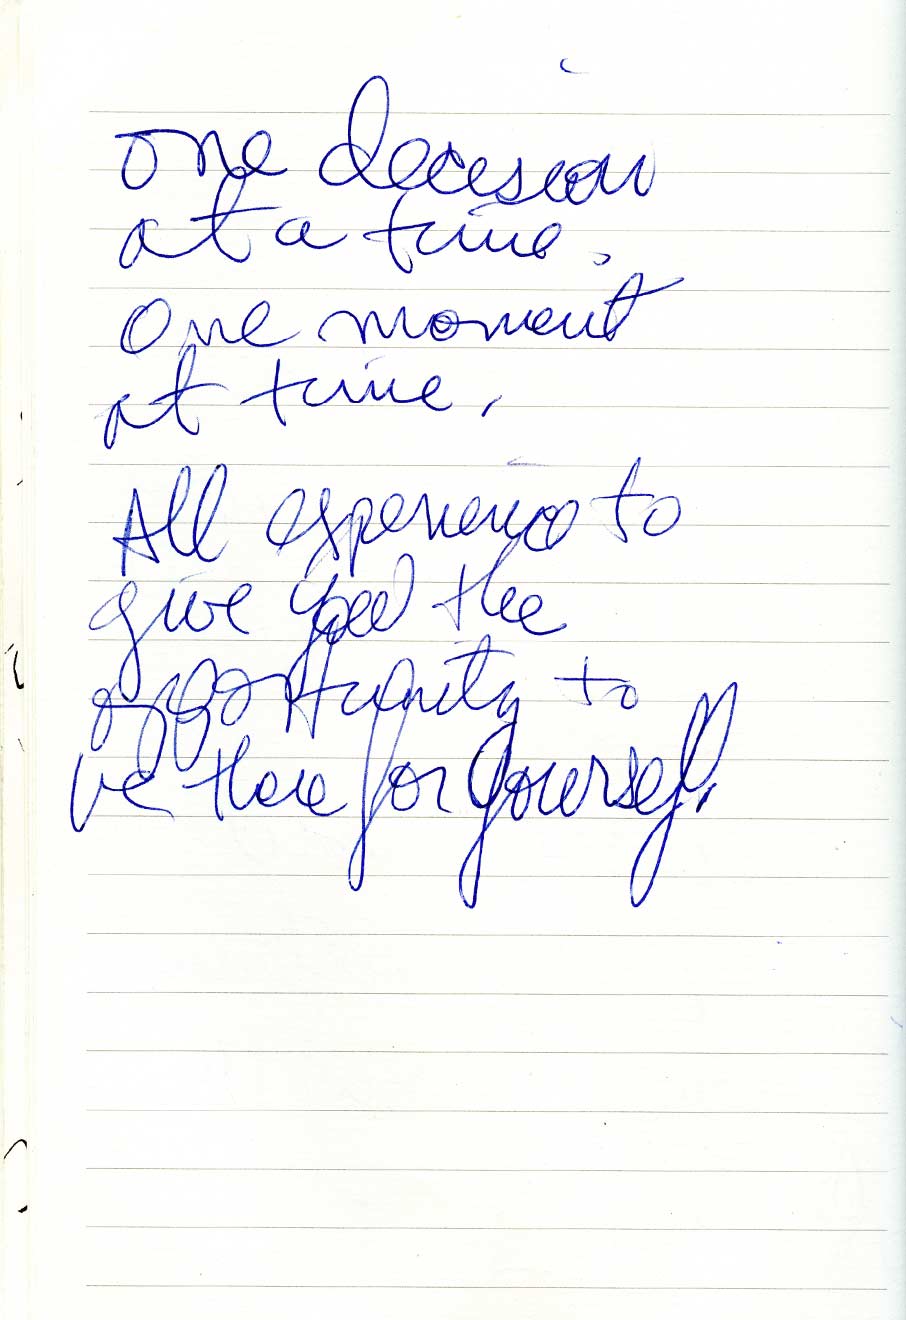 one decision
at a time.
One moment
at time.
All experience to
give you the
opportunity to
be there for yourself.